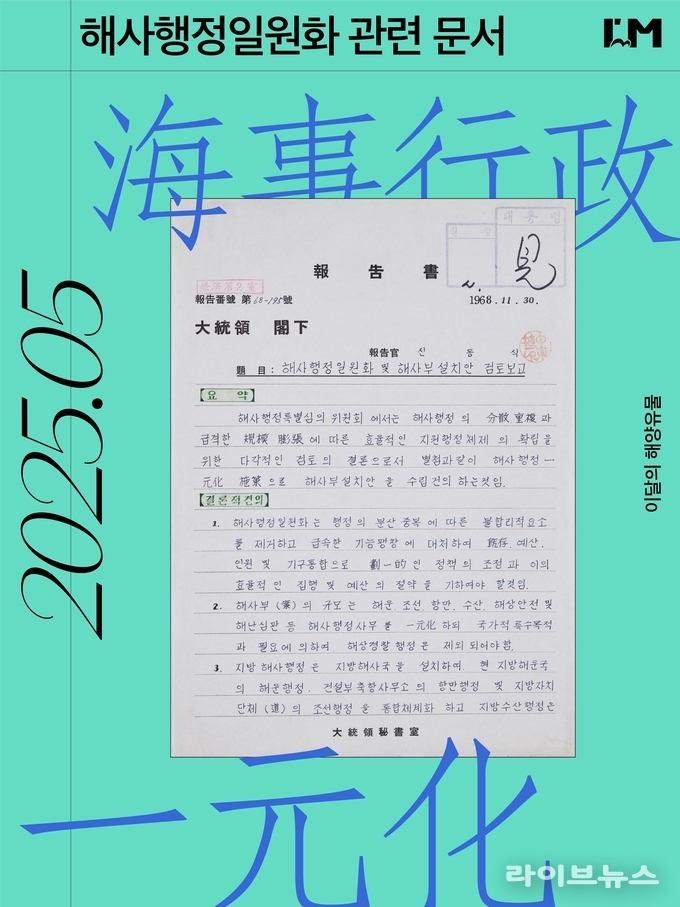 해사행정일원화 관련 문서
海事行政
2025.05
이달의 해양유물
대통령
報告書
見
報告番號 第68-195號
1968. 11. 30.
大統領 閣下
報告官 신 동 식
題 目 : 해사행정일원화 및 해사부설치안 검토보고
【요 약】
해사행정특별심의 위원회 에서는 해사행정 의 分散重複과
급격한 規模 膨張에 따른 효율적인 지원행정체제 의 확립을
위한 다각적인 검토의 결론으로서 별첨과같이 해사행정一
元化 施策으로 해사부설치안 을 수립건의 하는것임.
【결론적건의】
1. 해사행정일원화는 행정의 분산중복 에 따른 불합리적요소
를 제거하고 급속한 기능팽창 에 대처하여 既存 예산,
인원 및 기구통합으로 劃一的인 정책의 조정과 이의
효율적 인 집행 및 예산의 절약을 기하여야 할것임.
2. 해사부 (業)의 규모는 해운 조선, 항만, 수산, 해상안전 및
해난심판 등 해사행정사무를 一元化 하되 국가적특수목적
과 필요에 의하여, 해상경찰행정은 제외 되어야함.
3. 지방해사행정은 지방해사국을 설치하여, 현 지방해운국
의 해운행정, 건설부축항사무소의 항만행정 및 지방자치
단체 (道)의 조선행정을 통합체계화 하고 지방수산행정은
大統領秘書室
一元化
라이브뉴스